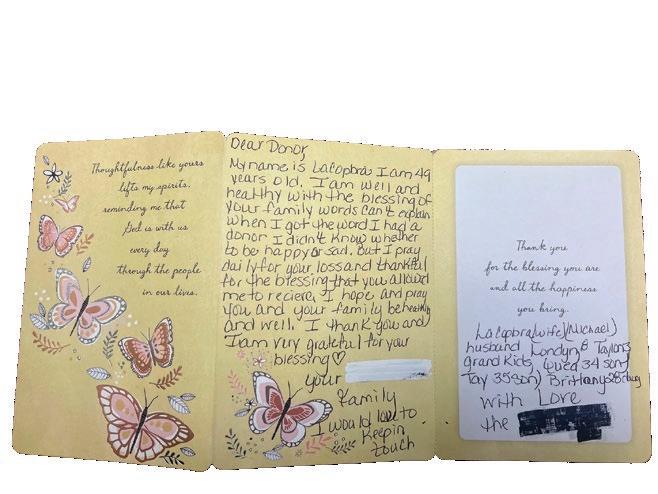 Thoughtfulness like yours
lifts my spirits,
reminding me that
God is with us
every day
through the people
in our lives.
Dear Donor,
My name is LaCopbra I am 49
years old. I am well and
healthy with the blessing of
your family words can't explain
when I got the word I had a
donor I didn't know whether
to be happy or sad. But I pray
daily for your loss and thankful
for the blessing that you allowed
me to recieve, I hope and pray
you and your family be healthy
and well. I thank you and
I am very grateful for your
blessing♡
your
family
I would love to
Keep in
touch
Thank you
for the blessing you are
and all the happiness
you bring.
LaCopbra(wife)(Michael)
husband Londyn 8 Taylor 3
grand kids, 34 son)
Tay 35 son) Brittany 28
with Love
the